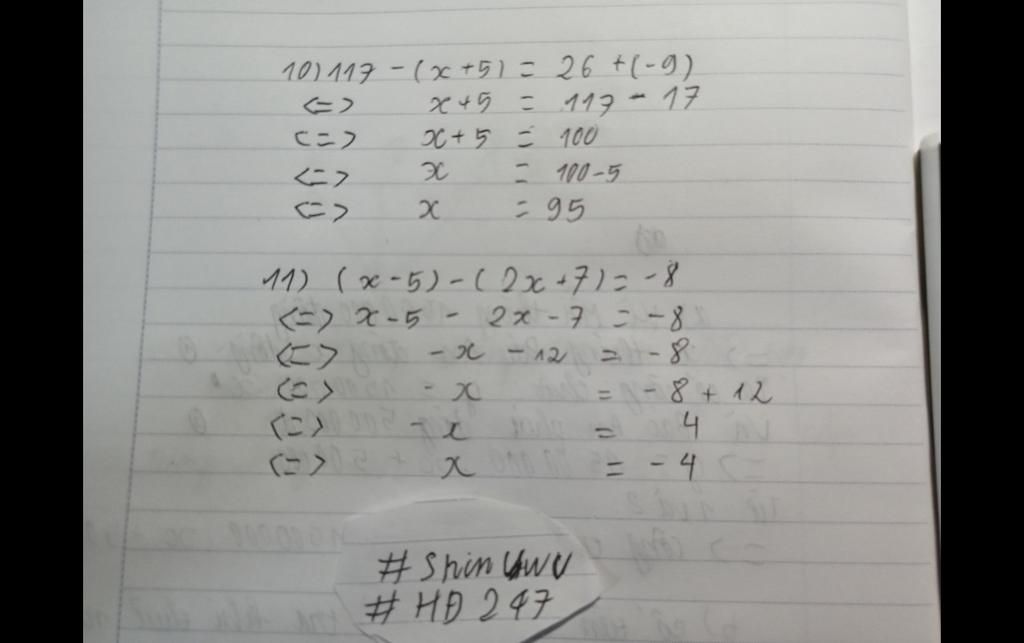 10) 117 - (x+5) = 26 + (-9)
<=> x+5 = 117 - 17
<=> x+5 = 100
<=> x = 100-5
<=> x = 95
11) (x-5)-(2x+7)= -8
<=> x-5 - 2x-7 = -8
<=> -x -12 = -8
<=> -x = -8 + 12
<=> -x = 4
<=> x = -4
# Shin UwU
# HĐ 247